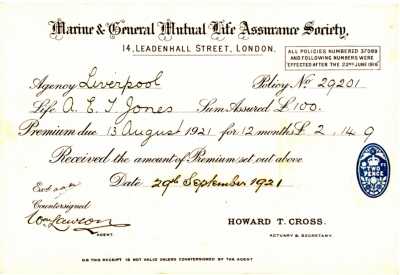 Marine & General Mutual Life Assurance Society,
14, LEADENHALL STREET, LONDON.
ALL POLICIES NUMBERED 37089
AND FOLLOWING NUMBERS WERE
EFFECTED AFTER THE 22ND JUNE 1916
Agency Liverpool Policy No 29201
Life A. E. T Jones Sum Assured £100.
Premium due 13 August 1921 for 12 months £ 2. 14. 9
Received the amount of Premium set out above
Date 29th September 1921
TWO
PENCE
Countersigned
Wm Lawson
AGENT.
HOWARD T. CROSS.
ACTUARY & SECRETARY.
THIS RECEIPT IS NOT VALID UNLESS COUNTERSIGNED BY THE AGENT